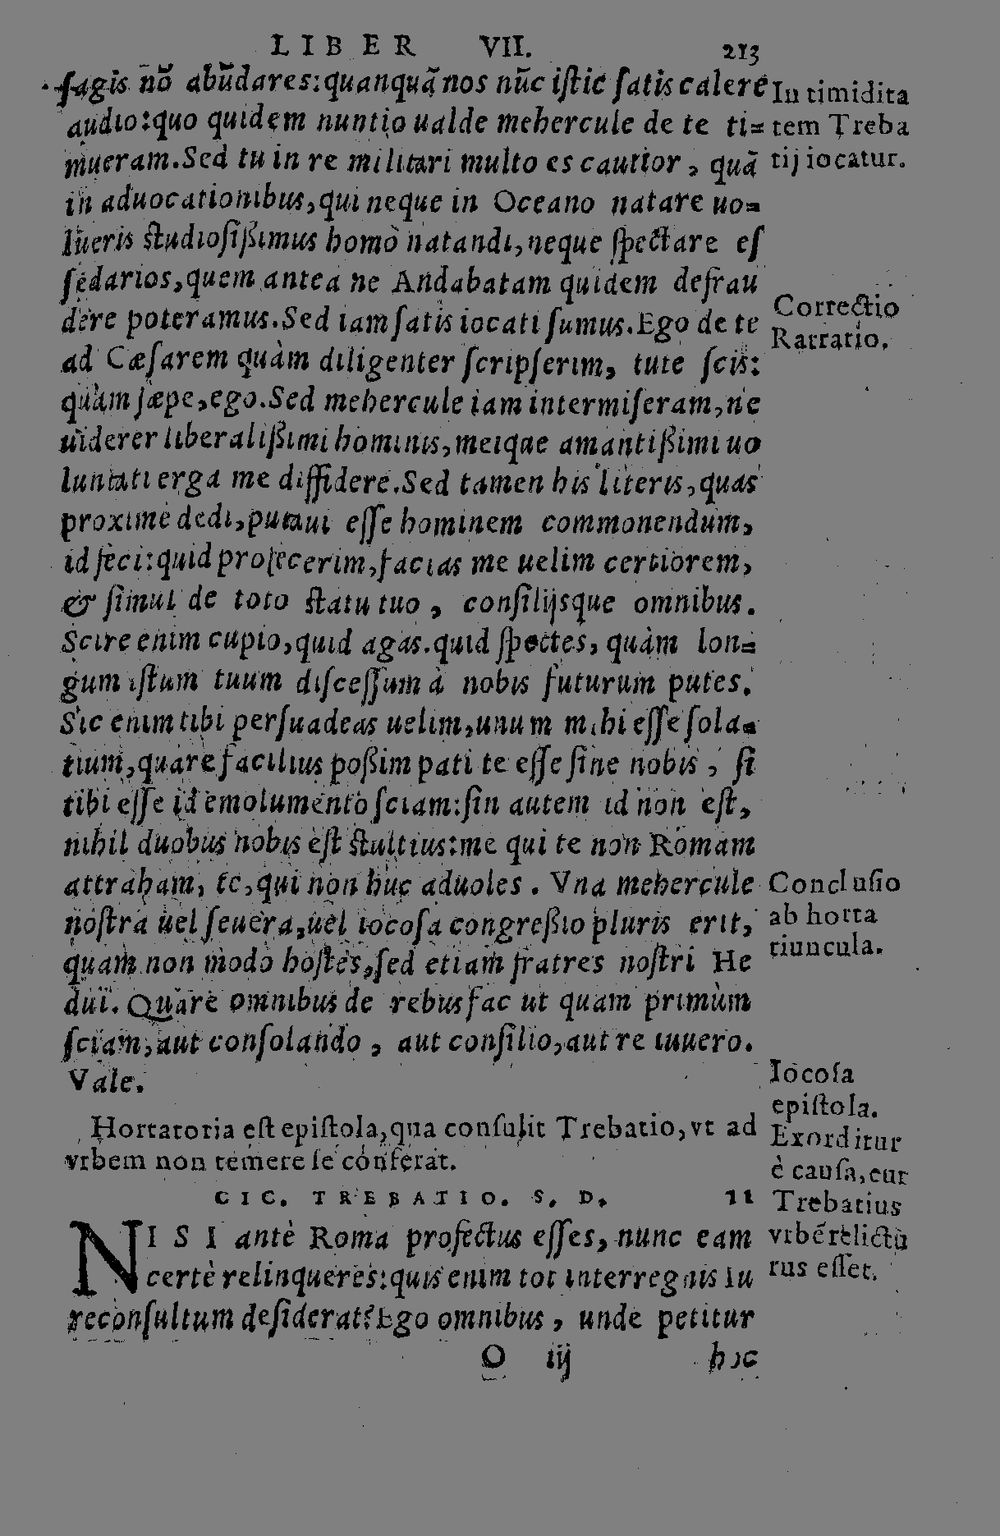 LIBER VII. 213
sagis nō abūdares: quanquā nos nūc istic satis calere
audio: quo quidem nuntio ualde mehercule de te ti=
mueram. Sed tu in re militari multo es cautior, quā
in aduocationibus, qui neque in Oceano natare uo=
lueris studiosißimus homo natandi, neque spectare es
sedarios, quem antea ne Andabatam quidem defrau
dere poteramus. Sed iam satis iocati sumus. Ego de te
ad Cæsarem quàm diligenter scripserim, tute scis:
quàm sæpe, ego. Sed mehercule iam intermiseram, ne
uiderer liberalißimi hominis, meique amantißimi uo
luntati erga me diffidere. Sed tamen his literis, quas
proximè dedi, putaui esse hominem commonendum,
id feci: quid profecerim, facias me uelim certiorem,
& simul de toto statu tuo, consilijsque omnibus.
Scire enim cupio, quid agas. quid spectes, quàm lon=
gum istum tuum discessum à nobis futurum putes.
Sic enim tibi persuadeas uelim, unum mihi esse sola=
tium, quare facilius poßim pati te esse sine nobis, si
tibi esse id emolumento sciam: sin autem id non est,
nihil duobus nobis est stultius: me qui te non Romam
attraham, te, qui non huc aduoles. Vna mehercule
nostra uel seuera, uel iocosa congreßio pluris erit,
quam non modo hostes, sed etiam fratres nostri He
dui. Quare omnibus de rebus fac ut quam primùm
sciam, aut consolando, aut consilio, aut re iuuero.
Vale.
In timidita
tem Treba
tij iocatur.
Correctio
Narratio.
Conclusio
ab horta
tiuncula.
Hortatoria est epistola, qua consulit Trebatio, vt ad
vrbem non temere se conferat.
CIC. TREBATIO. S. D. 11
NISI antè Roma profectus esses, nunc eam
certè relinqueres: quis enim tot interregnis iu
reconsultum desiderat? Ego omnibus, unde petitur
Iocosa
epistola.
Exorditur
è causa, cur
Trebatius
vrbē relictū
rus esset.
O iij hoc